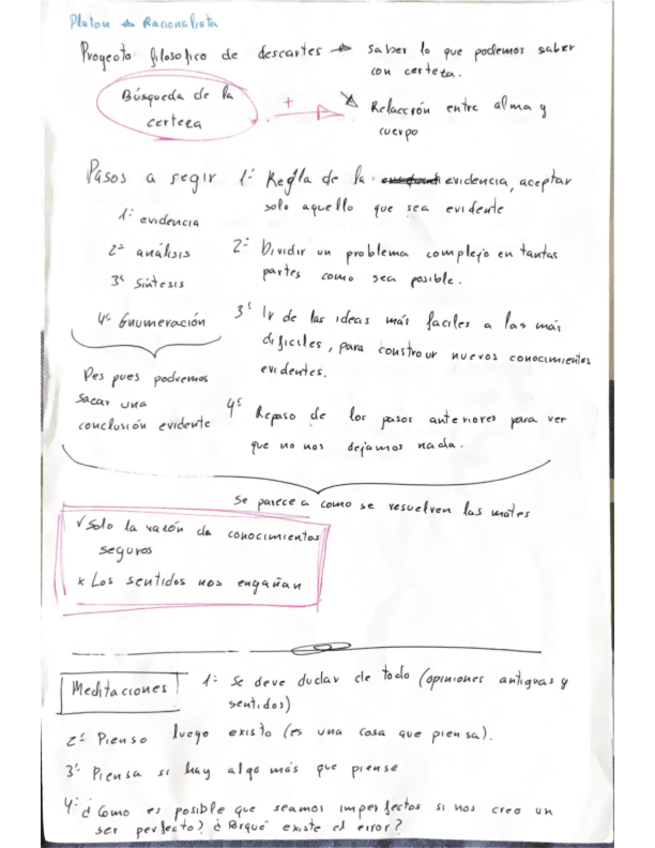 Platon → Racionalista
Proyecto filosofico de descartes → saber lo que podemos saber
con certeza.
Búsqueda de la
certeza
+
Relacción entre alma y
cuerpo
Pasos a segir
1º evidencia
2º análisis
3º Síntesis
4º Enumeración
Des pues podremos
sacar una
conclusión evidente
1º Regla de la evidencia, aceptar
solo aquello que sea evidente
2º Dividir un problema complejo en tantas
partes como sea posible.
3º Ir de las ideas más faciles a las más
dificiles, para constrour nuevos conocimientos
evidentes.
4º Repaso de los pasos anteriores para ver
que no nos dejamos nada.
Se parece a como se resuelven las mates
✓ Solo la razón da conocimientos
seguros
x Los sentidos nos engañan
Meditaciones
1º Se deve dudar de todo (opiniones antiguas y
sentidos)
2º Pienso luego existo (es una cosa que piensa).
3º Piensa si hay algo más que piense
4º ¿Como es posible que seamos imperfectos si nos creo un
ser perfecto? ¿Porqué existe el error?